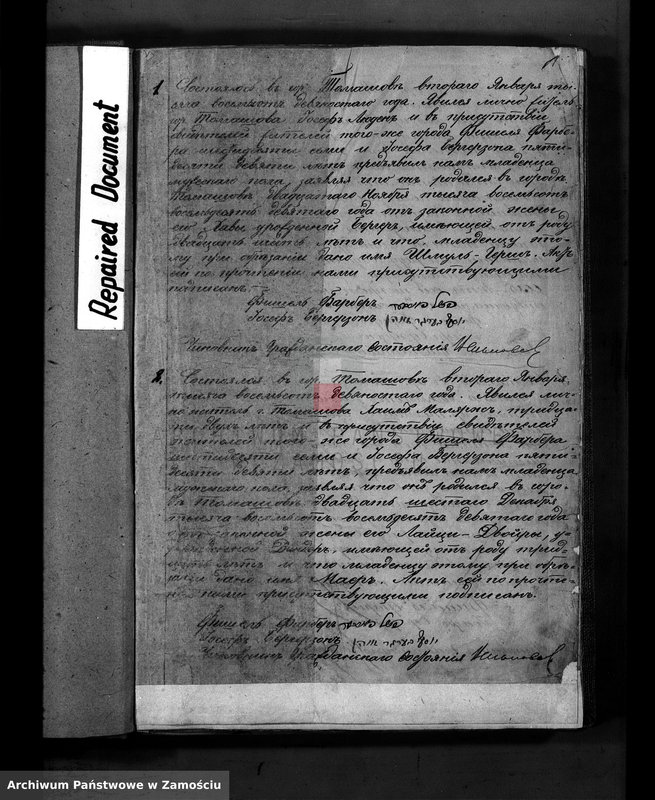 Repaired Document
1
Состоялось въ гор. Томашовѣ втораго Января ты-
сяча восемьсотъ девяностаго года. Явился лично житель
гор. Томашова Іосефъ и въ присутствіи
свидѣтелей жителей того-же города Фишеля Фарбе-
ра шестидесяти семи и Іосефа Бергерзона пяти-
десяти девяти лѣтъ предъявилъ намъ младенца
мужескаго пола, заявляя что онъ родился въ городѣ
Томашовѣ двадцатаго Ноября тысяча восемьсотъ
восемьдесятъ девятаго года отъ законной жены
его Хавы урожденной имѣющей отъ роду
двадцать шесть лѣтъ и что младенцу это-
му при обрѣзаніи дано имя Шмуль-Гершъ. Актъ
сей по прочтеніи нами присутствующими
подписанъ.
Фишель Фарберъ
Іосефъ Бергерзонъ
Чиновникъ Гражданскаго состоянія
2.
Состоялся въ гор. Томашовѣ втораго Января
тысяча восемьсотъ девяностаго года. Явился лич-
но житель г. Томашова Хаимъ Маляржъ, тридца-
ти двухъ лѣтъ и въ присутствіи свидѣтелей
жителей того-же города Фишеля Фарбера
шестидесяти семи и Іосефа Бергерзона пяти-
десяти девяти лѣтъ, предъявилъ намъ младенца
мужескаго пола, заявляя что онъ родился въ горо-
дѣ Томашовѣ двадцать шестаго Декабря
тысяча восемьсотъ восемьдесятъ девятаго года
отъ законной жены его Лайци-Двойры, у-
рожденной имѣющей отъ роду трид-
цать лѣтъ и что младенцу этому при обрѣ-
заніи дано имя Маеръ. Актъ сей по прочте-
ніи нами присутствующими подписанъ.
Фишель Фарберъ
Іосефъ Бергерзонъ
Чиновникъ Гражданскаго состоянія
Archiwum Państwowe w Zamościu